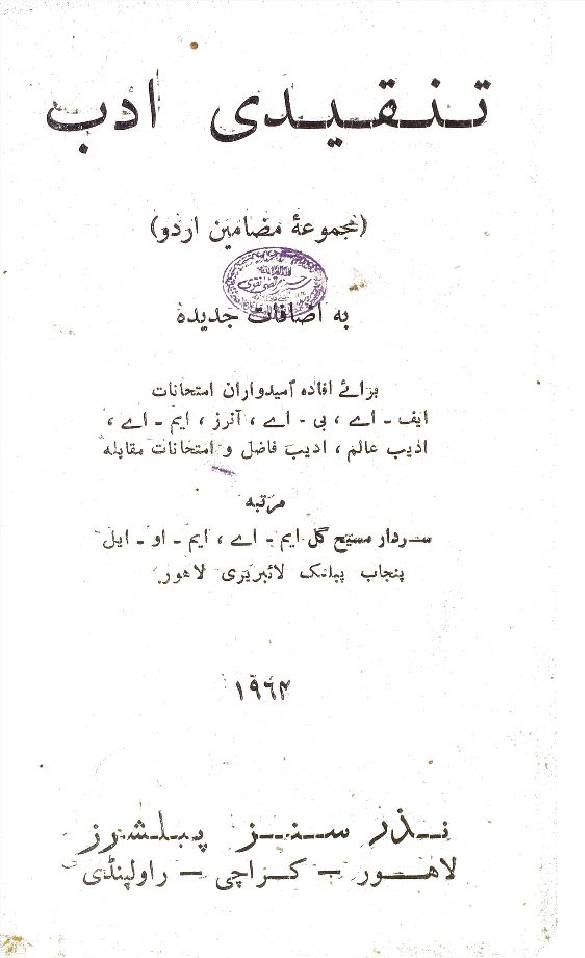 تنقیدی ادب
(مجموعۂ مضامین اردو)
بہ اضافات جدیدہ
برائے افادہ امیدواران امتحانات
ایف ۔ اے ، بی ۔ اے ، آنرز ، ایم ۔ اے ،
ادیب عالم ، ادیب فاضل و امتحانات مقابلہ
مرتبہ
سردار مسیح گل ایم ۔ اے ، ایم ۔ او ۔ ایل
پنجاب پبلک لائبریری لاہور
۱۹۶۴
نذر سنز پبلشرز
لاہور — کراچی — راولپنڈی